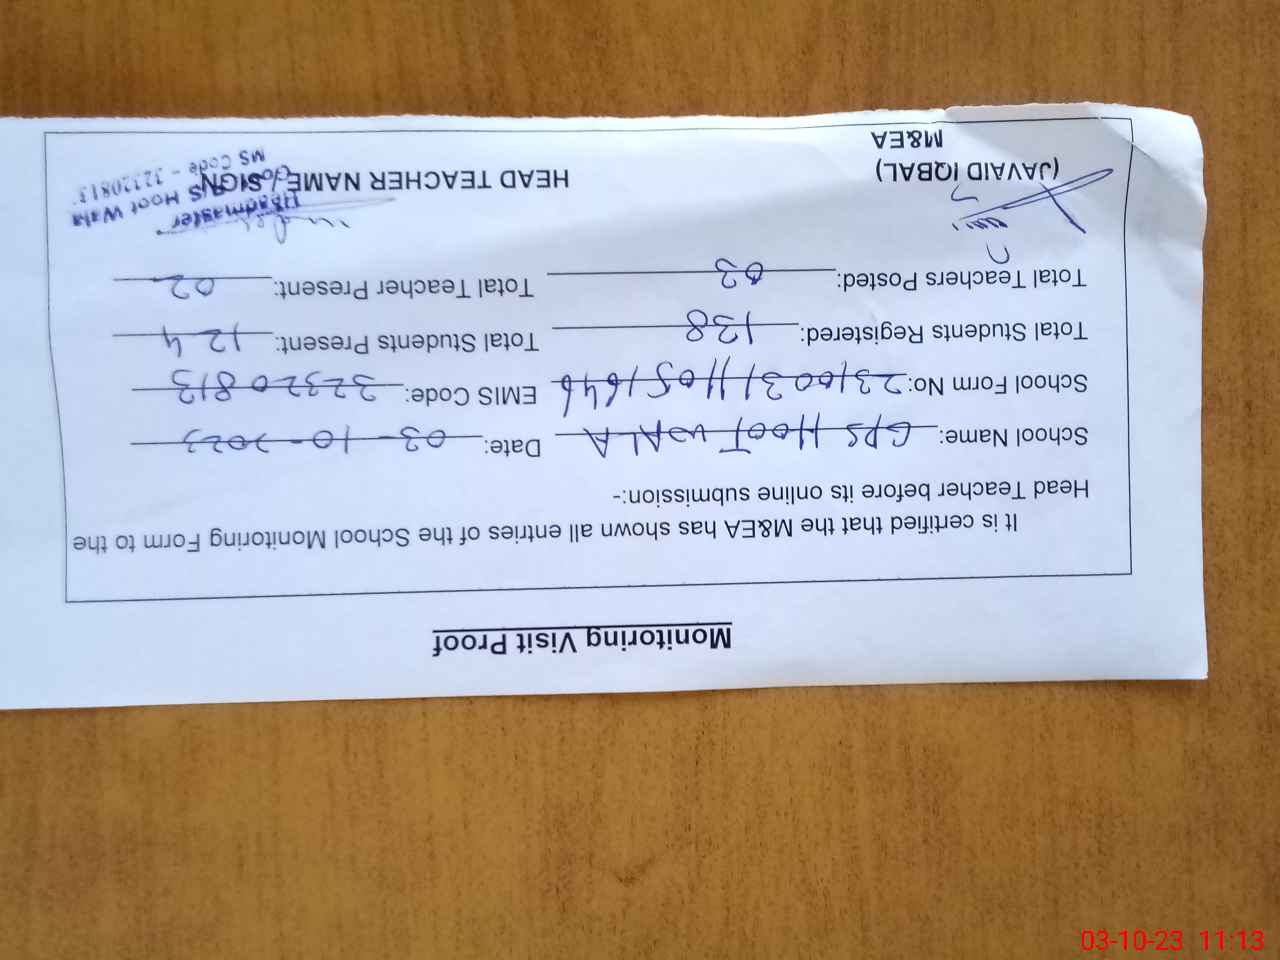 Monitoring Visit Proof
It is certified that the M&EA has shown all entries of the School Monitoring Form to the
Head Teacher before its online submission:-
School Name: GPS HOOT WALA Date: 03-10-2023
School Form No: 231003111051646 EMIS Code: 32320813
Total Students Registered: 138 Total Students Present: 124
Total Teachers Posted: 03 Total Teacher Present: 02
Headmaster
Hoot Wala
(JAVAID IQBAL) HEAD TEACHER NAME / SIGN
M&EA
MS Code - 32320813
03-10-23 11:13